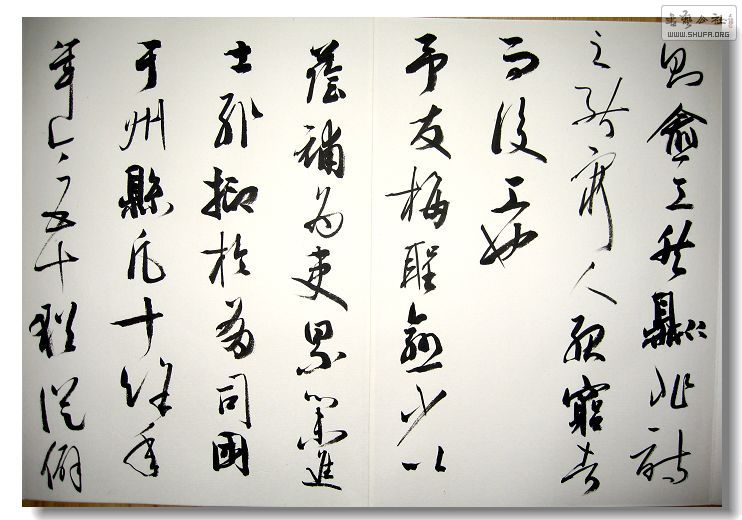 书艺公社
WWW.SHUFA.ORG
則愈工然則非詩
之能窮人殆窮者
而後工也
予友梅聖俞少以
蔭補為吏累舉進
士輒抑於有司困
于州縣凡十餘年
年今五十猶從僻